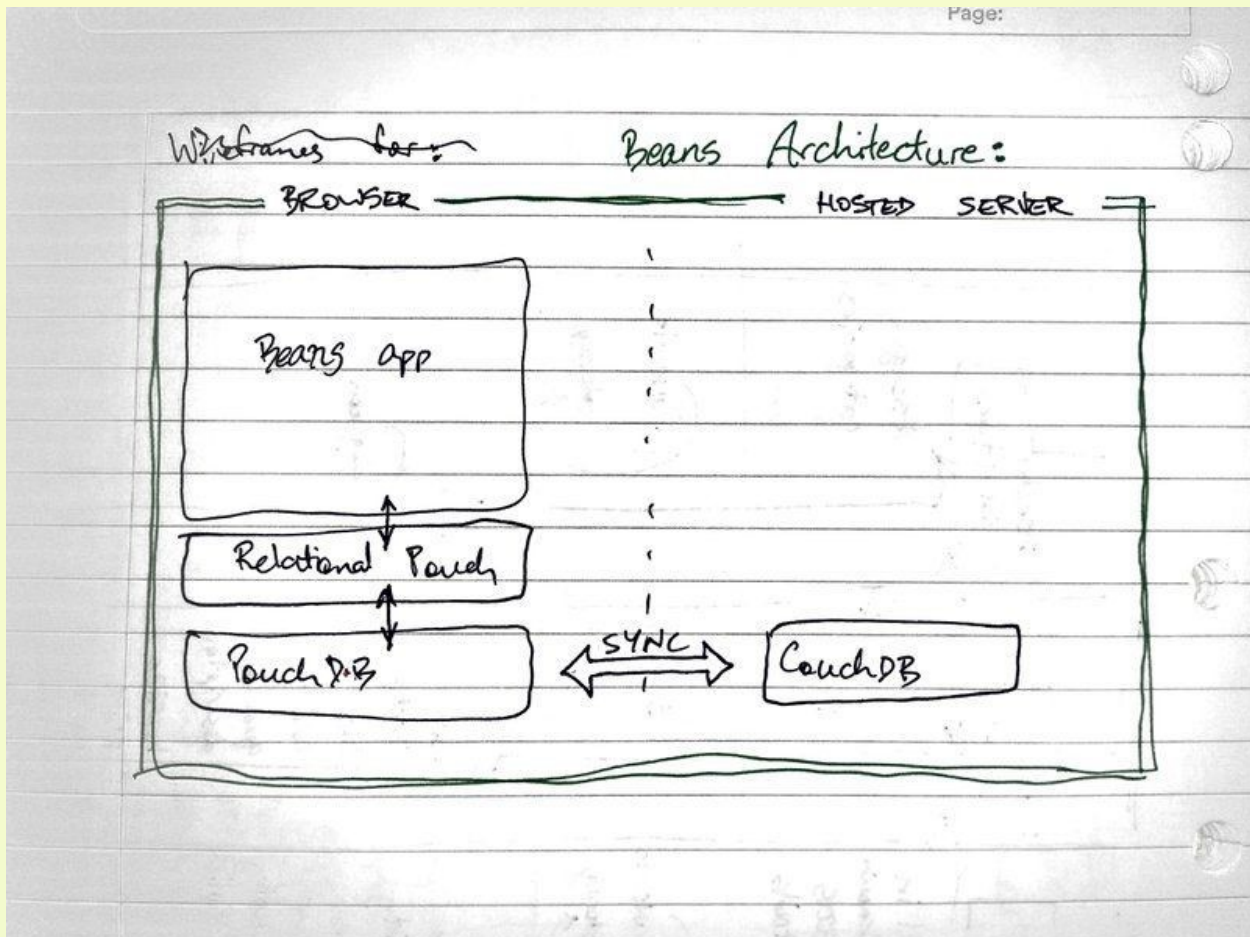 Page:
Wireframes for:
Beans Architecture:
BROWSER
HOSTED SERVER
Beans app
Relational Pouch
SYNC
PouchDB
CouchDB